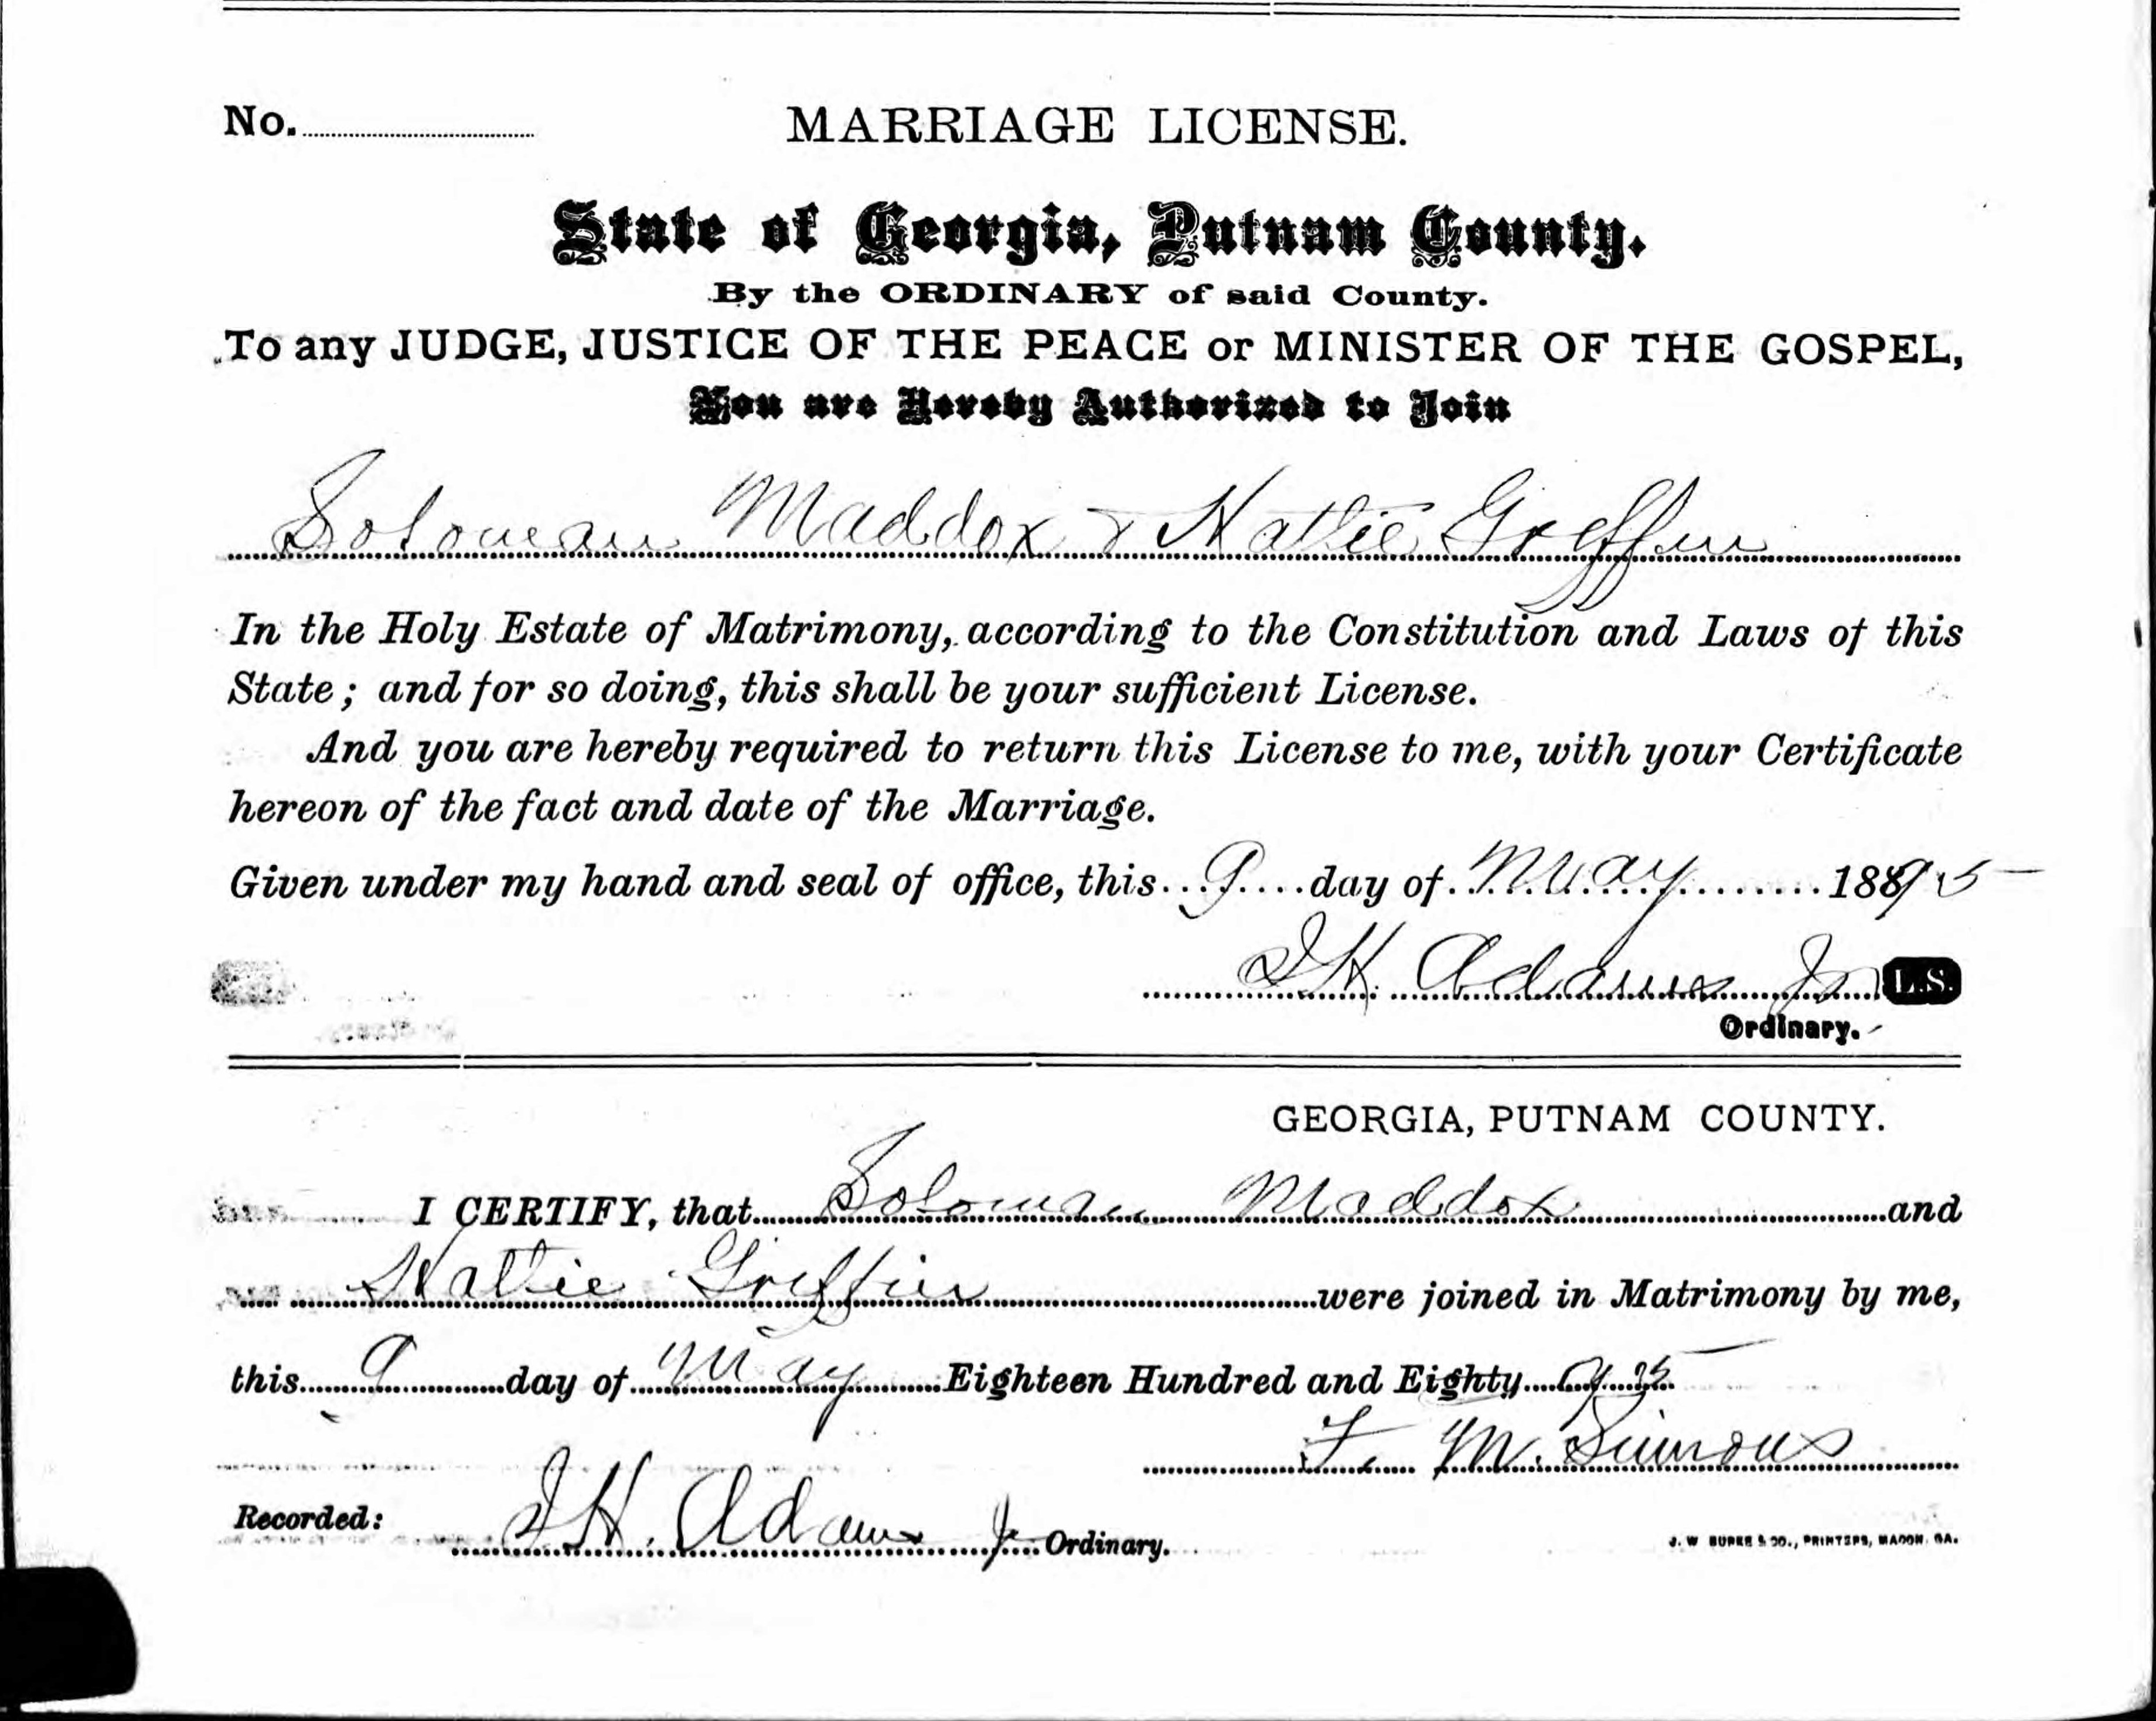 No.
MARRIAGE LICENSE.
State of Georgia, Putnam County.
By the ORDINARY of said County.
To any JUDGE, JUSTICE OF THE PEACE or MINISTER OF THE GOSPEL,
You are Hereby Authorized to Join
Soloman Maddox & Hattie Greffin
In the Holy Estate of Matrimony, according to the Constitution and Laws of this
State; and for so doing, this shall be your sufficient License.
And you are hereby required to return this License to me, with your Certificate
hereon of the fact and date of the Marriage.
Given under my hand and seal of office, this 9 day of May 1895
J H. Adams Jr L.S.
Ordinary.
GEORGIA, PUTNAM COUNTY.
I CERTIFY, that Soloman Maddox and
Hattie Greffin were joined in Matrimony by me,
this 9 day of May Eighteen Hundred and Eighty 95
F. M. Simons
Recorded: J H. Adams Jr Ordinary.
J. W BURKE & CO., PRINTERS, MACON, GA.